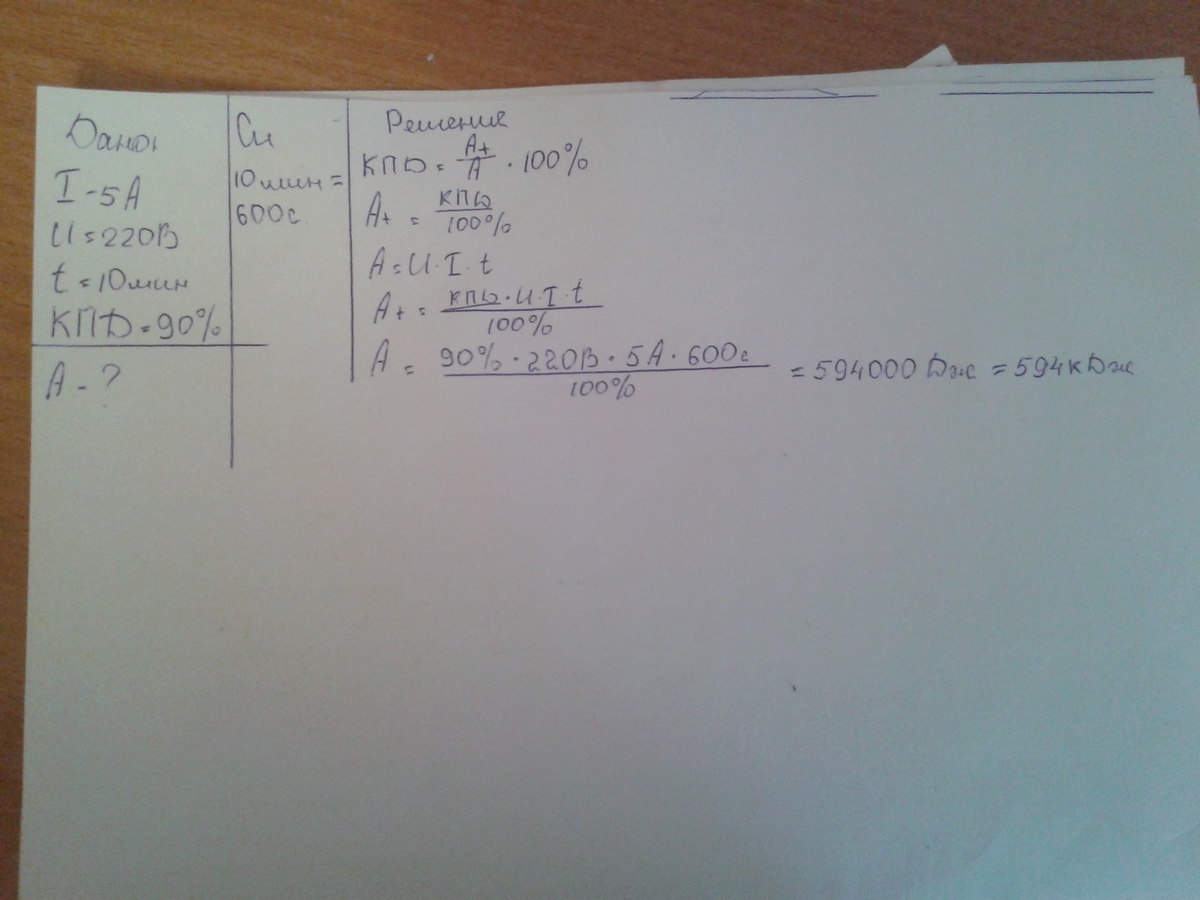 Дано:
I - 5А
U = 220В
t = 10мин
КПД = 90%
А - ?
Си
10мин =
600с
Решения
КПД = A+/A · 100%
A+ = КПД/100%
A = U · I · t
A+ = КПД · U · I · t/100%
A = 90% · 220В · 5А · 600с/100% = 594000 Дж = 594кДж